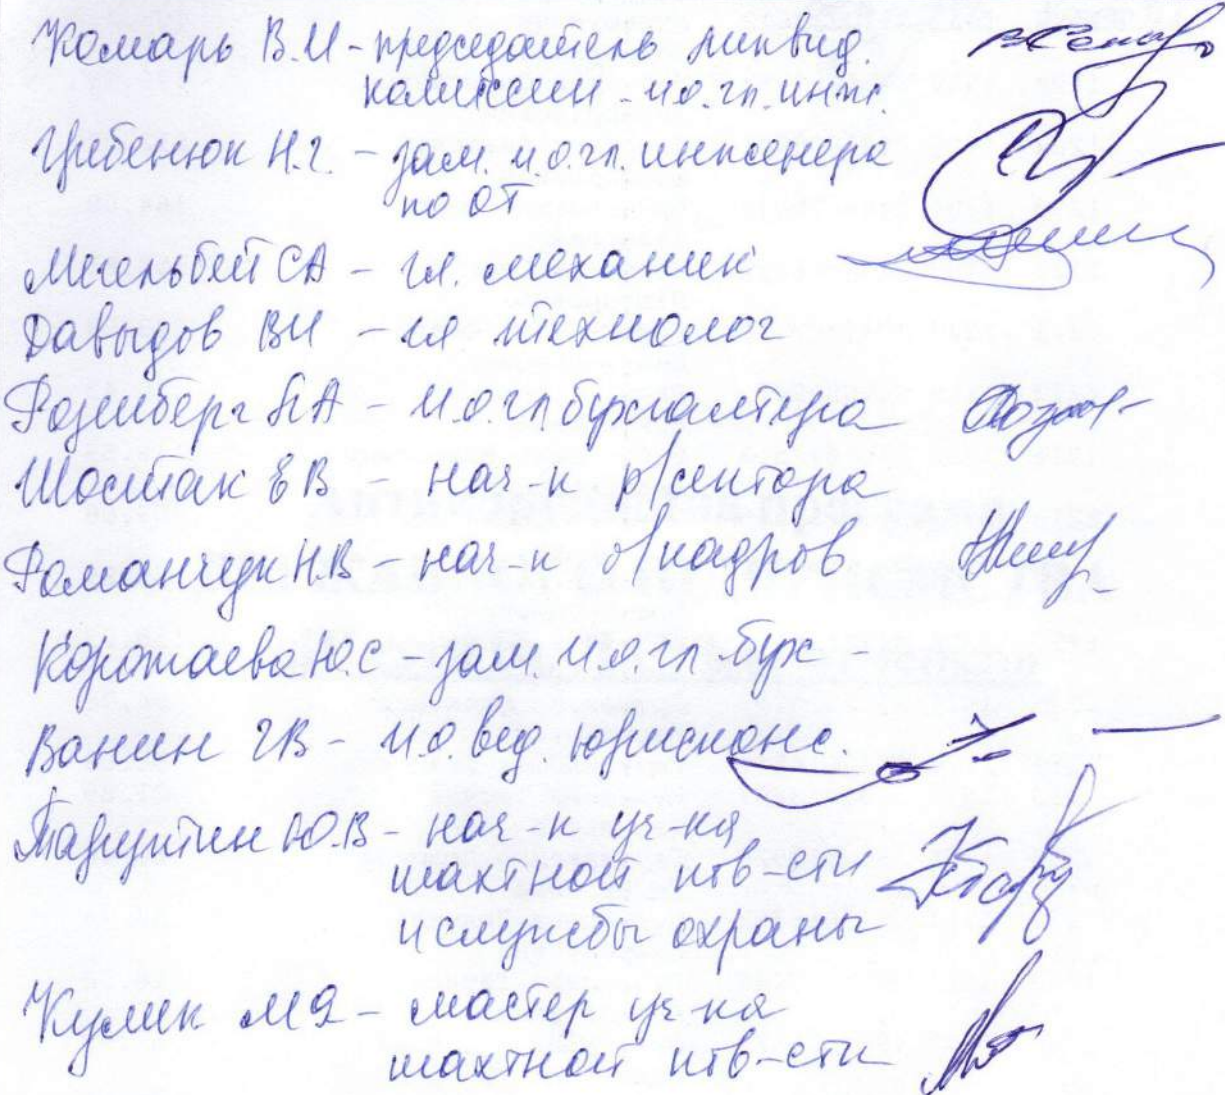 Комарь В.И - председатель ликвид.
комиссии - и.о. гл. инж.
Гребенюк Н.Г. - зам. и.о. гл. инженера
по ОТ
СА - гл. механик
Давыдов ВИ - гл технолог
Розенберг ЛА - и.о гл бухгалтера
Шостак ЕВ - нач-к р/сектора
Романчук Н.В - нач-к о/кадров
Коротаева Ю.С - зам. и.о. гл. бух -
Ванин ГВ - и.о вед. юрисконс.
Ю.В - нач-к уч-ка
шахтной пов-сти
и службы охраны
Кулик МЯ - мастер уч-ка
шахтной пов-сти